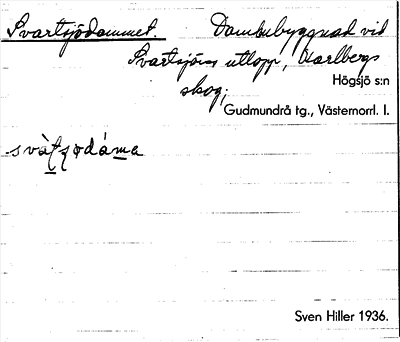 Svartsjödammet. Dambubyggnad vid
Svartsjöns utlopp, Karlbergs
skog;
Högsjö s:n
Gudmundrå tg., Västernorrl. l.
Sven Hiller 1936.